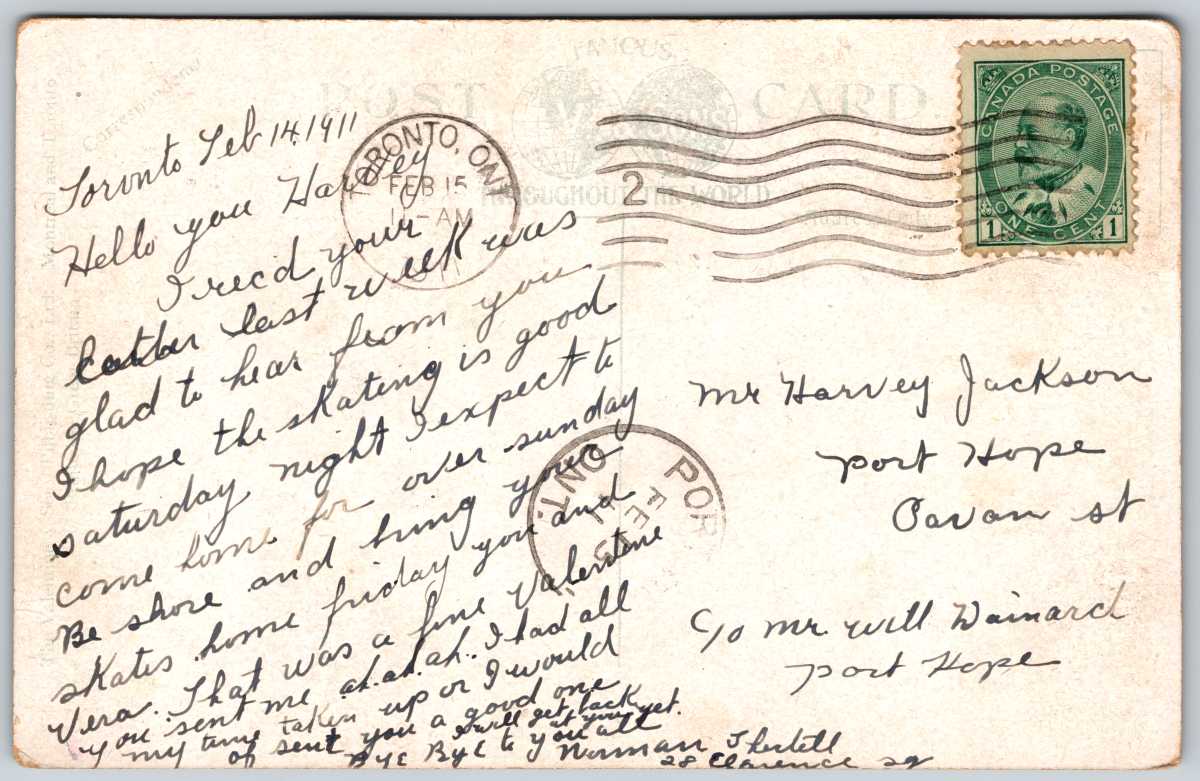 FAMOUS
POST CARD
THROUGHOUT THE WORLD
Correspondence
CANADA POSTAGE
1 ONE CENT 1
TORONTO, ONT
FEB 15
-AM
2
Toronto Feb 14 1911
Hello you Harvey
I rec'd your
letter last week was
glad to hear from you
I hope the skating is good
saturday night I expect to
come home for over sunday
Be shore and bring your
skates home friday you and
Vera. That was a fine Valentine
you sent me ah.ah.ah. I had all
my time taken up or I would
of sent you a good one
I will get back
at you yet.
Bye Bye to you all
Norman
28 Clarence sq
ONT.
POR
FE
Mr Harvey Jackson
Port Hope
Cavan st
c/o Mr. Will Wainard
Port Hope